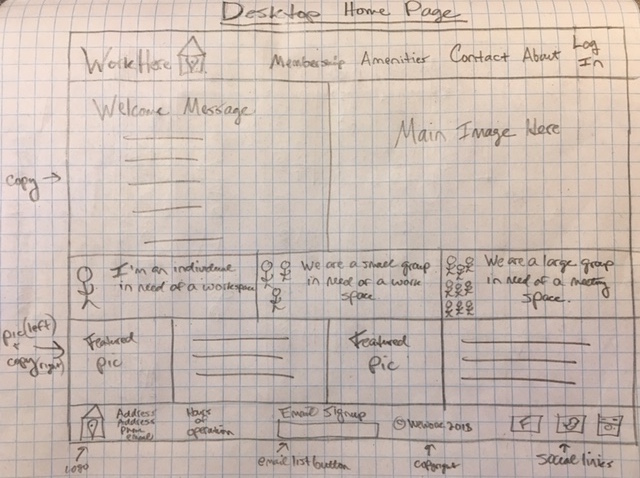 Desktop Home Page
WorkHere
Membership Amenities Contact About Log In
Welcome Message
Main Image Here
copy →
I'm an individual
in need of a workspace
We are a small group
in need of a work
space.
We are a large group
in need of a meeting
space.
pic (left)
+
copy (right)
Featured
pic
Featured
pic
Address
Address
Phone
email
Hours
of
operation
Email Signup
2018
F
logo
email list button
copyright
social links